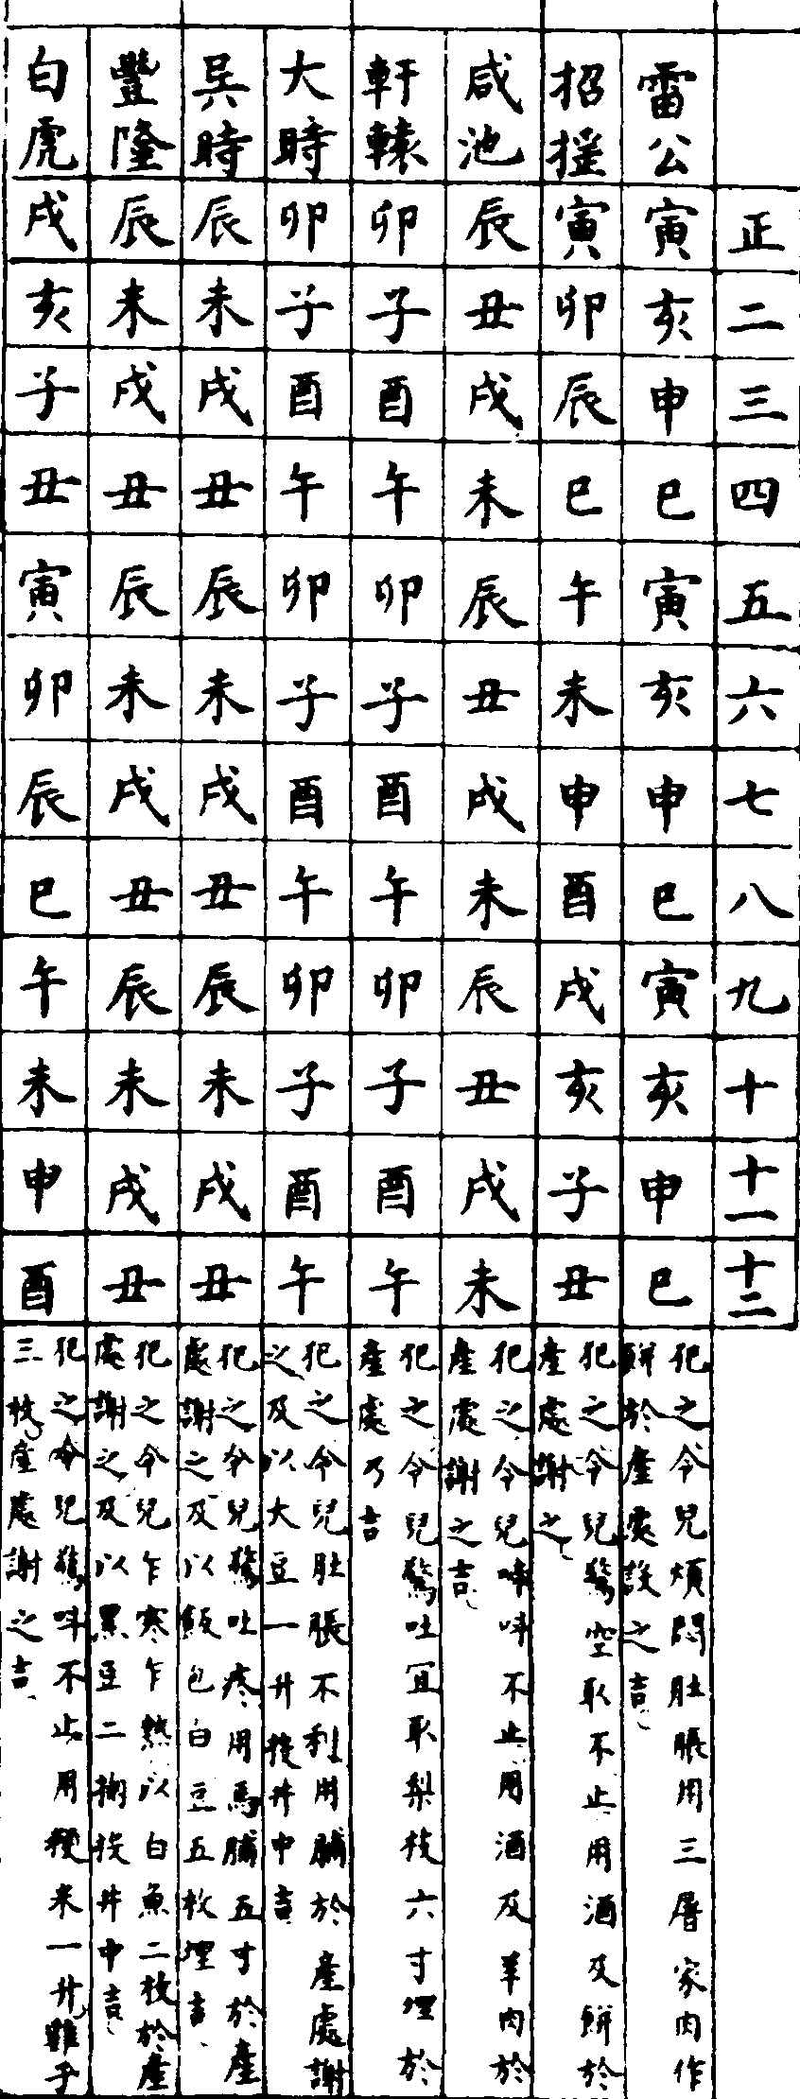 正 二 三 四 五 六 七 八 九 十 十一 十二
雷公 寅 亥 申 巳 寅 亥 申 巳 寅 亥 申 巳
犯之令兒煩悶肚脹用三屠家肉作
餅於產處設之吉
招搖 寅 卯 辰 巳 午 未 申 酉 戌 亥 子 丑
犯之令兒驚空取不止用酒及餅於
產處謝之
咸池 辰 丑 戌 未 辰 丑 戌 未 辰 丑 戌 未
犯之令兒啼叫不止用酒及羊肉於
產處謝之吉
軒轅 卯 子 酉 午 卯 子 酉 午 卯 子 酉 午
犯之令兒驚吐宜取梨枝六寸埋於
產處乃吉
大時 卯 子 酉 午 卯 子 酉 午 卯 子 酉 午
犯之令兒肚脹不利用脯於產處謝
之及以大豆一升投井中吉
吳時 辰 未 戌 丑 辰 未 戌 丑 辰 未 戌 丑
犯之令兒驚吐疼用馬脯五寸於產
處謝之及以飯包白豆五枚埋吉
豐隆 辰 未 戌 丑 辰 未 戌 丑 辰 未 戌 丑
犯之令兒乍寒乍熱以白魚二枚於產
處謝之及以黑豆二掬投井中吉
白虎 戌 亥 子 丑 寅 卯 辰 巳 午 未 申 酉
犯之令兒驚叫不止用粳米一升雞子
三枚產處謝之吉